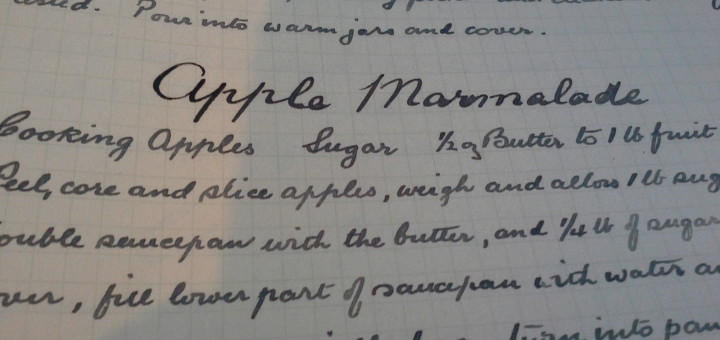 Pour into warm jars and cover.
Apple Marmalade
Cooking Apples Sugar 1/2 oz Butter to 1 lb fruit
Peel, core and slice apples, weigh and allow 1 lb sug
ouble saucepan with the butter, and 1/4 lb of sugar
ver, fill lower part of saucepan with water a
turn into pan